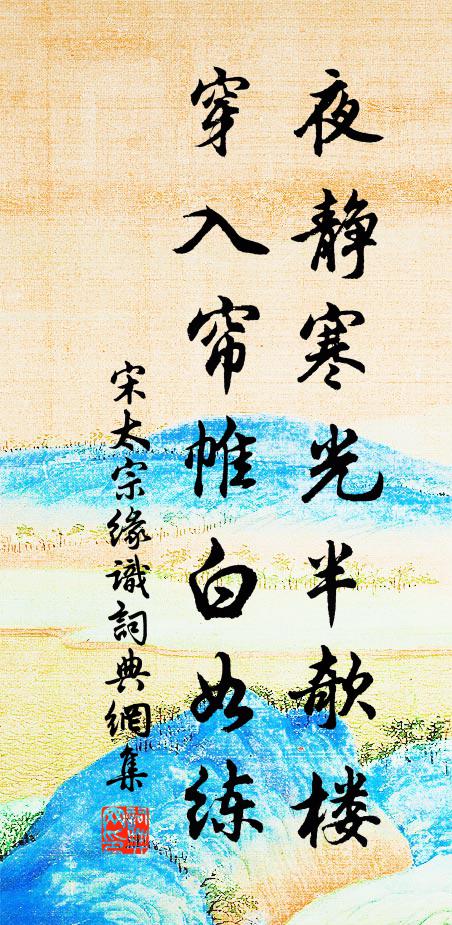 夜静寒光半欹楼
穿入帘帷白如练
宋太宗缘識詞典網集